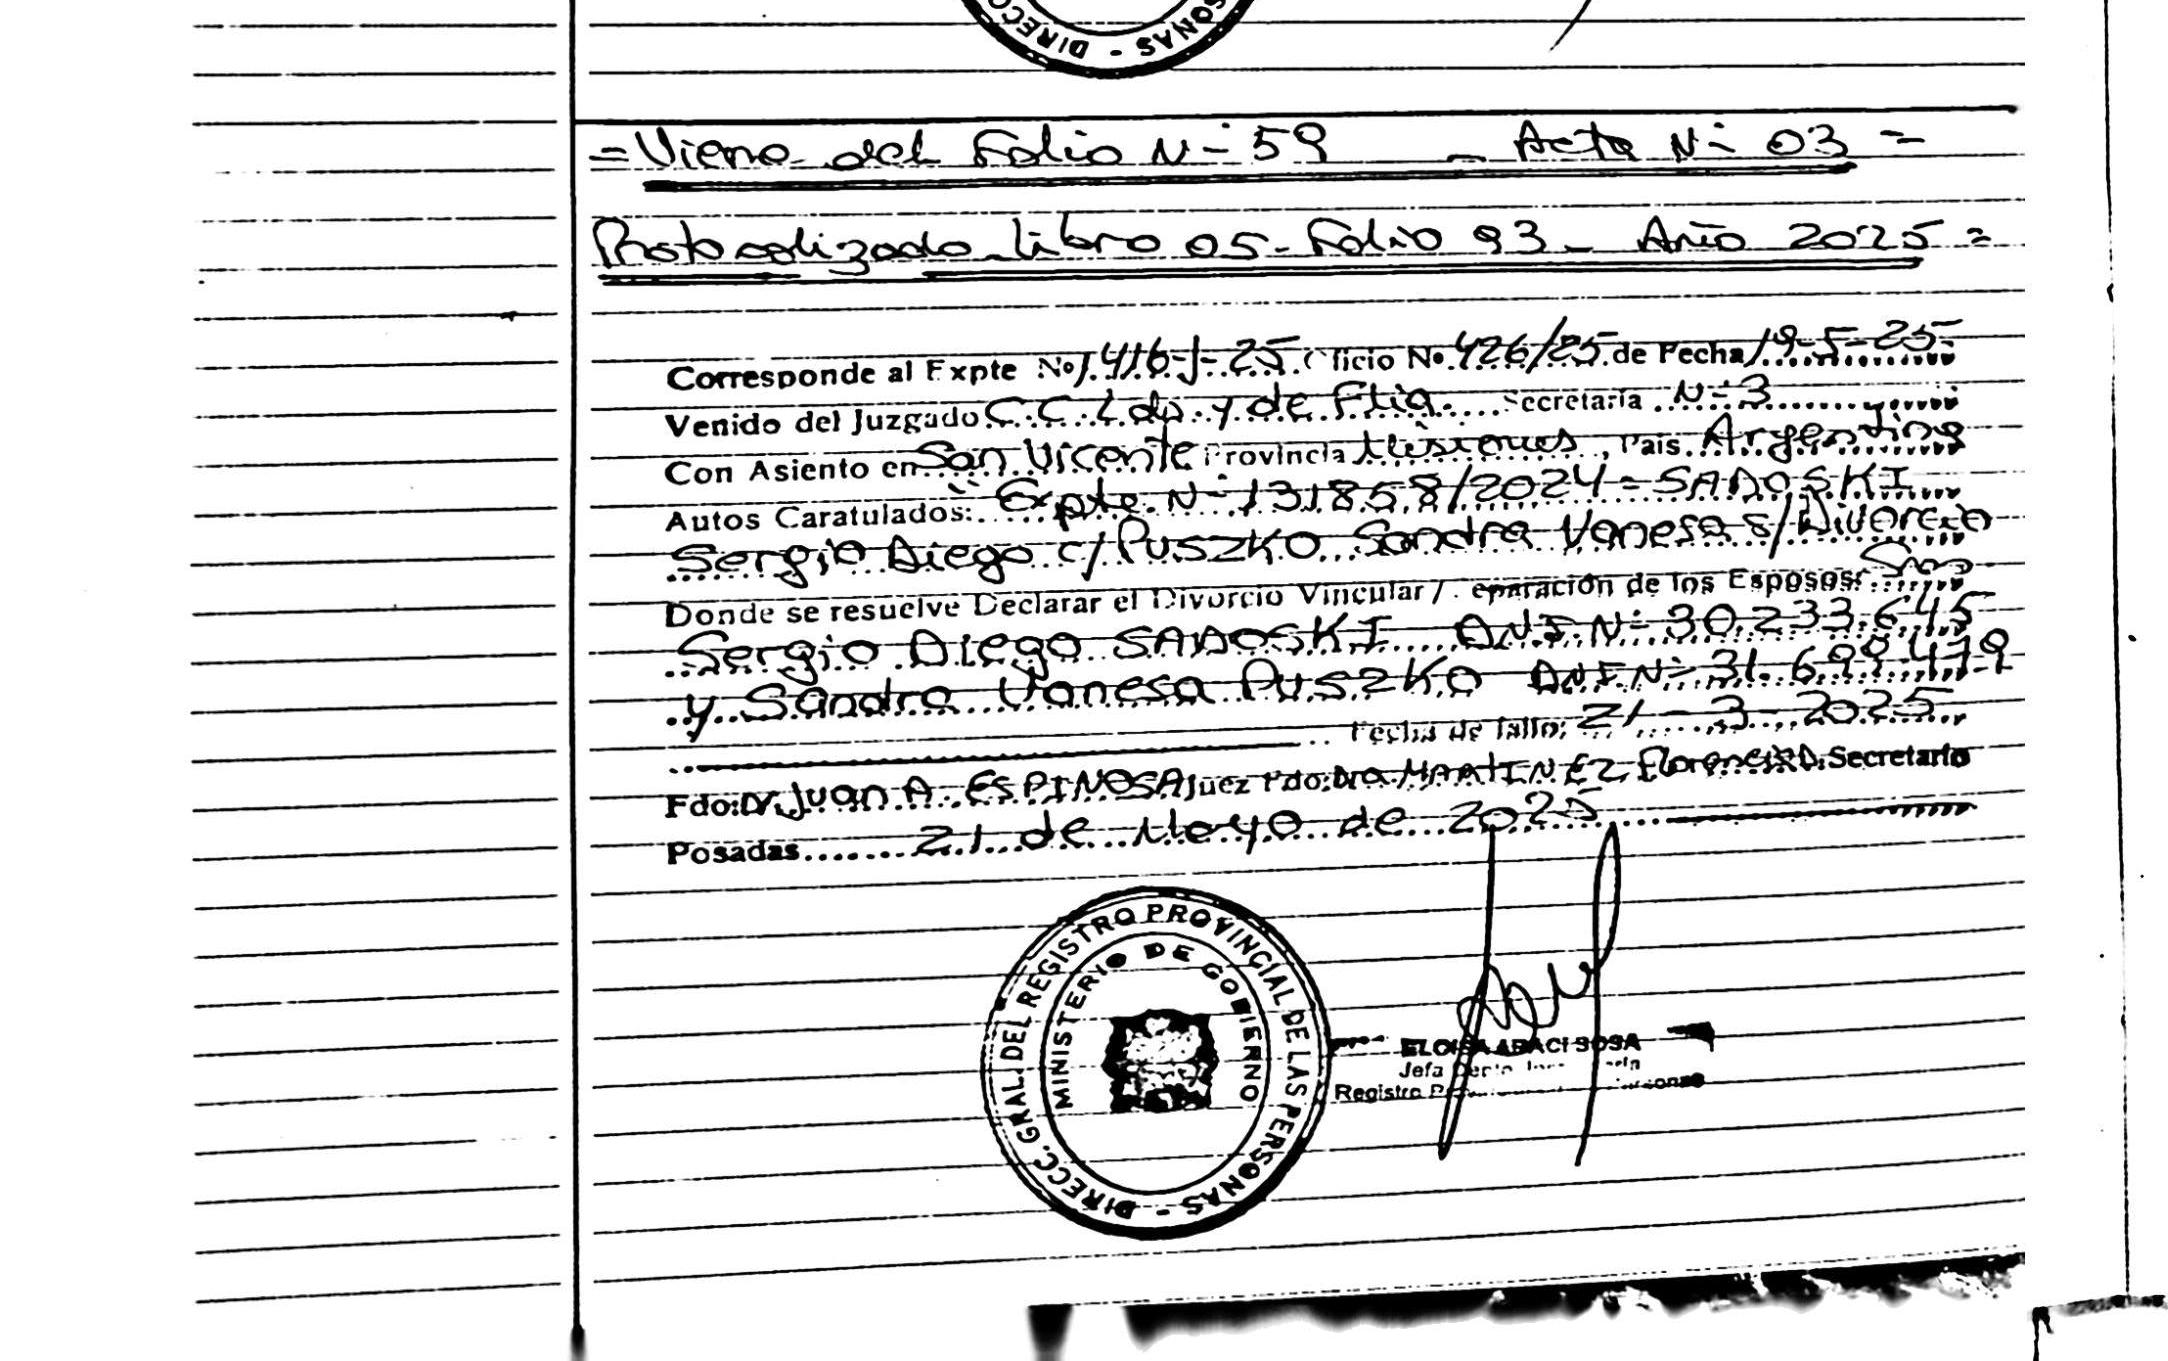 SONAS - DIRECC
= Viene del Folio N- 59 - Acta N- 03 =
Protocolizado Libro 05 - Folio 93 - Año 2025 =
Corresponde al Expte Nº 1.416-J-25 Oficio Nº 426/25 de Fecha 19-5-25
Venido del Juzgado C.C. Lab. y de Flia. Secretaría N-3
Con Asiento en San Vicente Provincia Misiones, Pais Argentina
Autos Caratulados: "Expte. N- 131858/2024 = SADOSKI
Sergio Diego c/ PUSZKO Sandra Vanesa s/ Divorcio
Donde se resuelve Declarar el Divorcio Vincular / Separación de los Esposos:
Sergio Diego SADOSKI D.N.I. N- 30.233.645
y Sandra Vanesa PUSZKO D.N.I. N- 31.699.479
Fecha de fallo: 21-3-2025
Fdo: Dr. Juan A. ESPINOSA Juez Fdo: Dra. MARTINEZ, Florencia D. Secretario
Posadas 21 de Mayo de 2025
DIRECC. GRAL. DEL REGISTRO PROVINCIAL DE LAS PERSONAS -
MINISTERIO DE GOBIERNO
ELOISA ABACI SOSA
Jefa Depto.
Registro